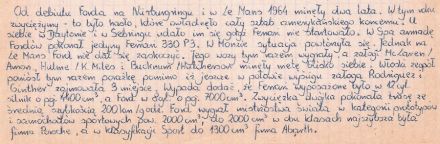 Od debiutu Forda na Nürburgringu i w Le Mans 1964 minęły dwa lata. W tym roku
zwyciężymy - to było hasło, które owładnęło cały sztab amerykańskiego koncernu. U
siebie w Daytonie i w Sebringu udało im się gdyż Ferrari nie startowało. W Spa armadę
Fordów pokonał jedyny Ferrari 330 P3. W Monzie sytuacja powtórzyła się. Jednak na
Le Mans Ford nie dał się zaskoczyć. Jego wozy tym razem wygrały, a załogi McLaren/
Amon, Hulme/K. Miles i Bucknum/Hutcherson minęły metę blisko siebie. Włoski zespół
poniósł tym razem porażkę pomimo iż jeszcze w połowie wyścigu załoga Rodriguez i
Ginther zajmowała 3 miejsce. Wypada dodać, że Ferrari wyposażone było w 12 cyl.
silnik o poj. 4400 cm³, a Ford w 8 cyl. o poj. 7000 cm³. Zwycięska dwójka pokonała trasę ze
średnią szybkością 200 km/godz. Ford wygrał mistrzostwa świata w kategorii prototypów
i samochodów sportowych pow. 2000 cm³, do 2000 cm³ w obu klasach najszybsza była
firma Porsche, a w klasyfikacji Sport do 1300 cm³ firma Abarth.